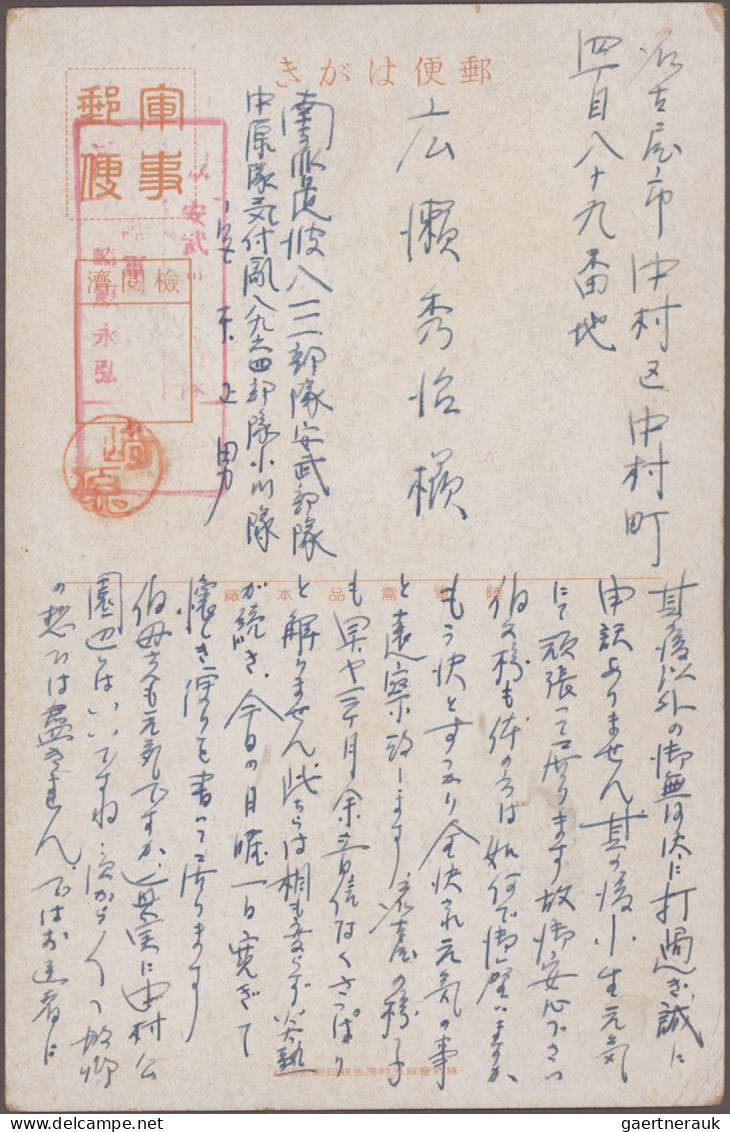 郵便はがき
軍事
郵便
検閲済
安武
永弘
崎原
名古屋市中村区中村町
四丁目八十九番地
広瀬秀治様
部隊安武部隊
中原隊気付 八九六四部隊小川隊
安東正男
陸軍需品本廠
其後以外の御無沙汰に打過ぎ誠に
申訳ありません其の後小生元気
にて頑張って居ります故御安心下さい
伯父様も体の方は如何で御座いますか
もう快とすっかり全快され元気の事
と遠察致します 名古屋の様子
も早や三ケ月余音信なくさっぱり
と解りません此ちらは相も変らず炎熱
が続き、今日の日曜一日寛ぎて
懐しき便りを書いて居ります
伯母さんも元気ですか、真実に中村公
園辺はいいですね、次から次へと故郷
の想ひは尽きません、ではお達者に
gaertnerauk